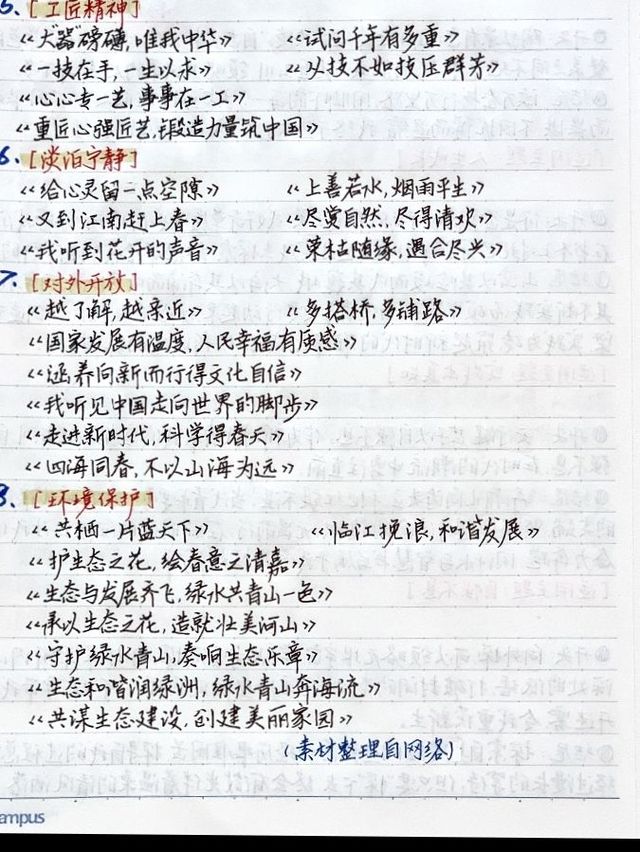 5. [工匠精神]
《"大器"磅礴,唯我中华》 《试问千年有多重》
《一技在手,一生以求》 《从技不如技压群芳》
《心心专一艺,事事在一工》
《重匠心强匠艺,锻造力量筑中国》
6. [淡泊宁静]
《给心灵留一点空隙》 《上善若水,烟雨平生》
《又到江南赶上春》 《尽赏自然,尽得清欢》
《我听到花开的声音》 《荣枯随缘,遇合尽兴》
7. [对外开放]
《越了解,越亲近》 《多搭桥,多铺路》
《国家发展有温度,人民幸福有质感》
《涵养向新而行得文化自信》
《我听见中国走向世界的脚步》
《走进新时代,科学得春天》
《四海同春,不以山海为远》
8. [环境保护]
《共栖一片蓝天下》 《临江挽浪,和谐发展》
《护生态之花,绘春意之清嘉》
《生态与发展齐飞,绿水共青山一色》
《承以生态之花,造就壮美河山》
《守护绿水青山,奏响生态乐章》
《生态和谐润绿洲,绿水青山奔海流》
《共谋生态建设,创建美丽家园》
(素材整理自网络)
ampus